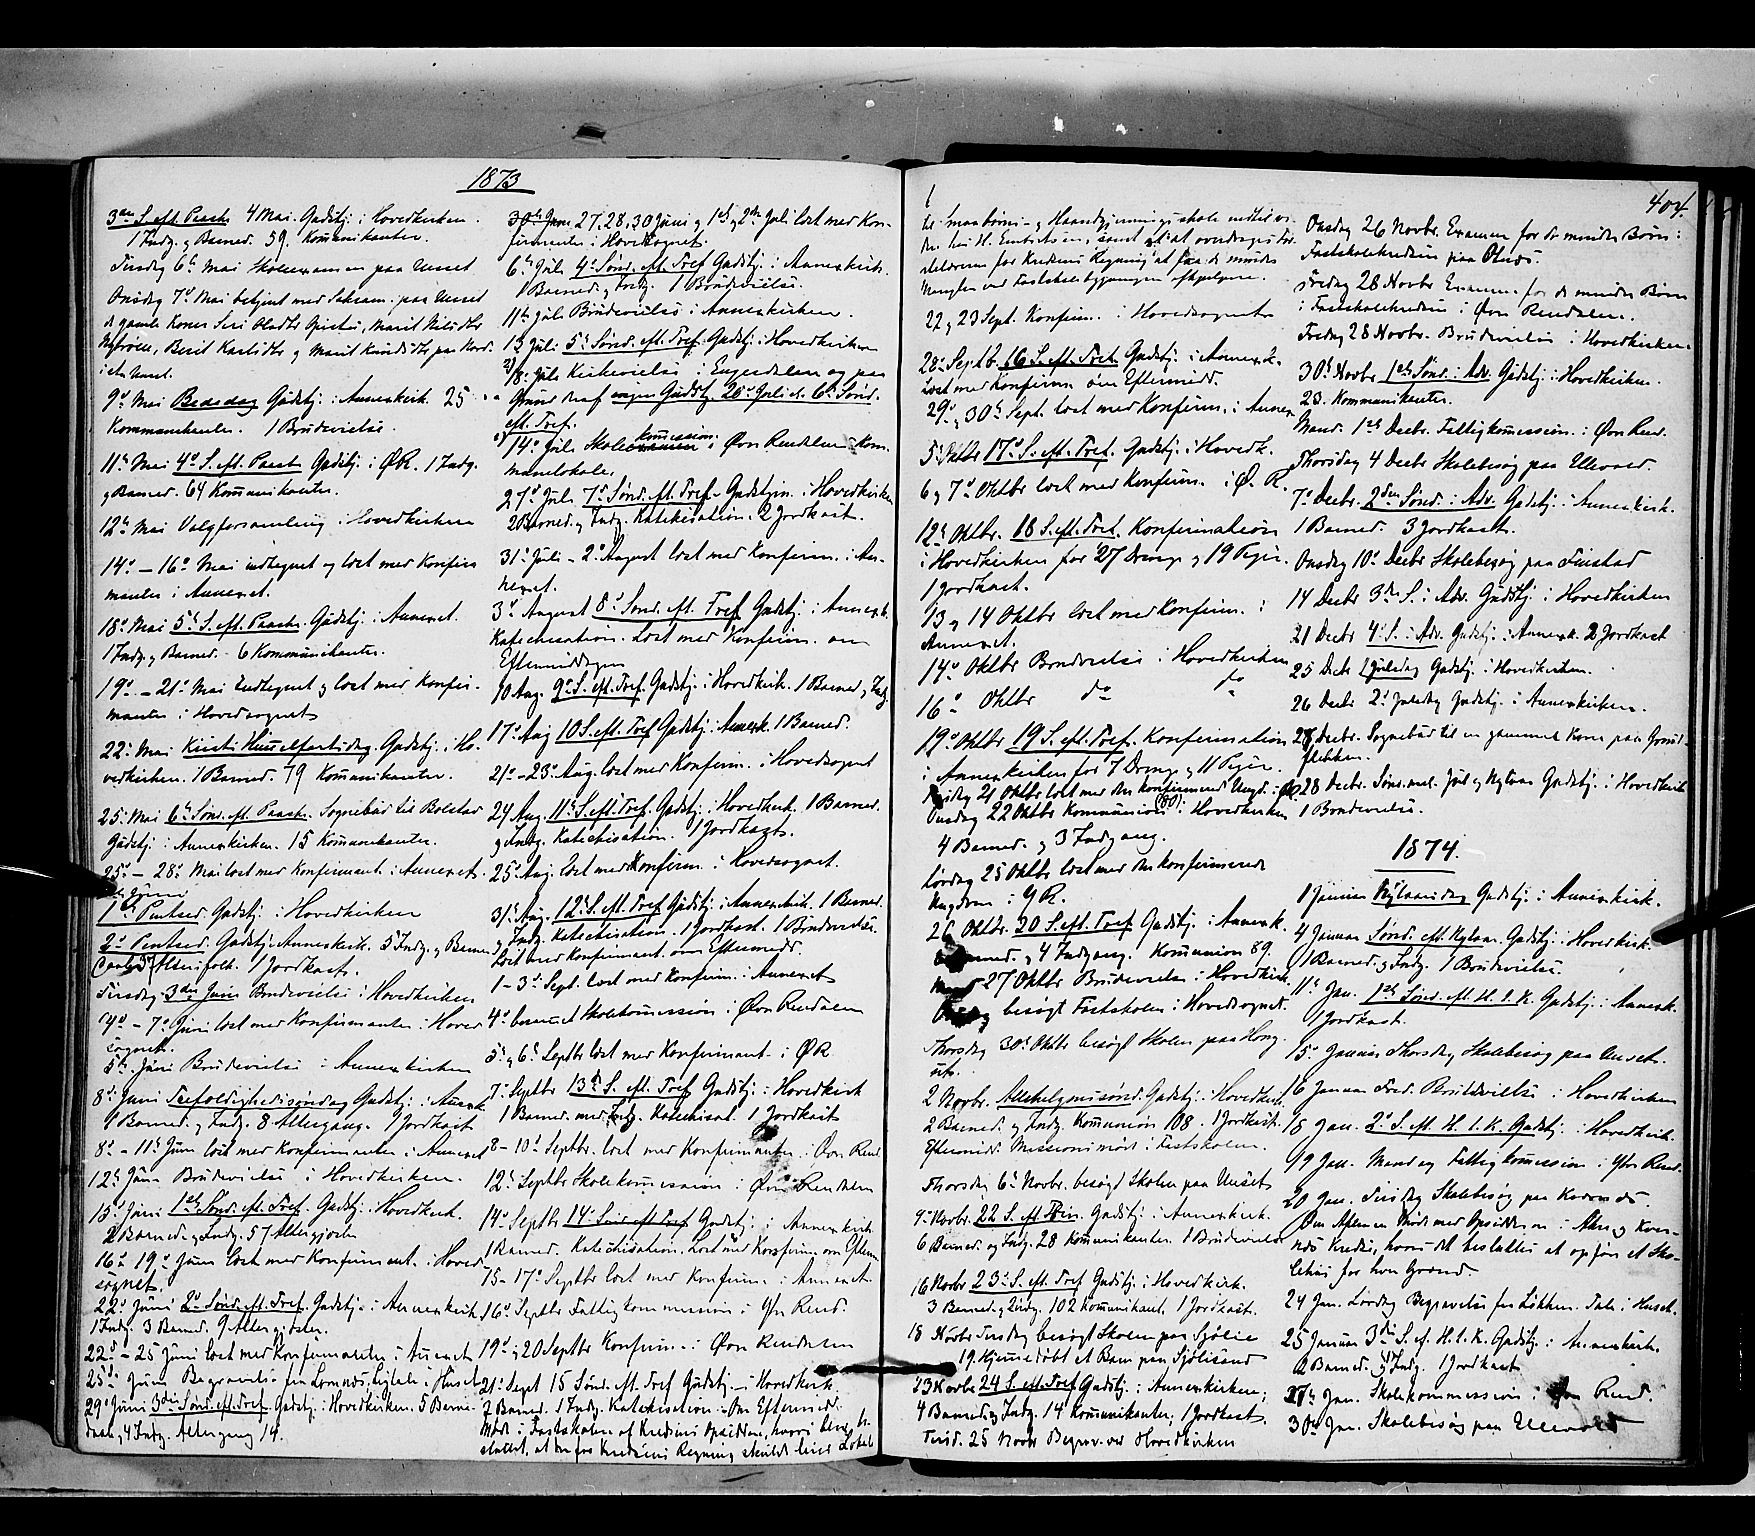 1873
3die S. eft. Paask. 4 Mai. Gudstj. i Hovedkirken.
1 Indg. og Barned. 59. Kommunikanter.
Tirsdag 6te Mai Skoleexamen paa Unset
Onsdag 7de Mai betjent med Sakram. paa Unset
de gamle Koner Siri Marit
Berit og Marit paa Nord-
9de Mai Bededag Gudstj. i Annexkirk. 25
Kommunikanter. 1 Brudevielse.
11te Mai 4de S. eft. Paask. Gudstj. i Ø.R. 1 Indg.
og Barned. 64 Kommunikanter.
12te Mai Valgforsamling i Hovedkirken
14de – 16de Mai indtegnet og læst med Konfir-
manter i Annexet.
18de Mai 5te S. eft. Paask. Gudstj. i Annexet.
1 Indg. og Barned. 6 Kommunikanter.
19de – 21de Mai Indtegnet og læst med Konfir-
manter i Hovedsognet
22de Mai Kristi Himmelfartsdag. Gudstj. i Ho-
vedkirken. 1 Barned. 79 Kommunikanter.
25de Mai 6te Sønd. eft. Paask. Sognebud til
Gudstj. i Annexkirken. 15 Kommunikanter.
25de – 28de Mai læst med Konfirmant. i Annexet.
1ste Pintsed. Gudstj. i Hovedkirken
2den Pintsed. Gudstj. Annexkirk. 5 Indg. og Barned.
57 Altersfolk. 1 Jordkast.
Tirsdag 3die Juni Brudevielse i Hovedkirken
4de – 7de Juni læst med Konfirmanter i Hoved
sognet.
5te Juni Brudevielse i Annexkirken
8de Juni Trefoldighedssøndag Gudstj. i Annexk.
1 Barned. og Indg. 8 Alterg. 1 Jordkast
8de – 11te Juni læst med Konfirmanter i Annexet
12te Juni Brudevielse i Hovedkirken.
15de Juni 1ste Sønd. eft. Tref. Gudstj. i Hovedkirk.
2 Barned. og Indg. 57 Altergjester
16de 19de Juni læst med Konfirmant. i Hoved
sognet.
22de Juni 2den Sønd. eft. Tref. Gudstj. i Annexkirk.
1 Indg. 3 Barned. 9 Altergjester.
22de – 25 Juni læst med Konfirmanter i Annexet
25de Juni Begravelse
29de Juni 3die Sønd. eft. Tref. Gudstj. i Hovedkirken. 5 Barne-
daab, 4 Indg. Altergang 14.
27, 28, 30 Juni og 1ste og 2den Juli læst med Kon-
firmanter i Hovedsognet.
6te Juli 4de Sønd. eft. Tref. Gudstj. i Annexkirk.
1 Barned. og Indg. 1 Brudevielse.
11te Juli Brudevielse i Annexkirken.
13 Juli 5te Sønd. eft. Tref. Gudstj. i Hovedkirken
18de Juli Kirkevielse i Engerdalen og paa
Grund deraf ingen Gudstj. 20de Juli d. 6te Sønd.
eft. Tref.
14de Juli Skolekomission i Øvre Rendalen Kom-
munelokale.
27de Juli 7de Sønd. eft. Tref. Gudstjen. i Hovedkirken
2 Barned. og Indg. Katekisation. 2 Jordkast.
31te Juli – 2den August læst med Konfirm. i An-
nexet.
3die August 8de Sønd. eft. Tref. Gudstj. i Annexk.
Katechisation. Læst med Konfirm. om
Eftermiddagen
10 Aug. 9de S. eft. Tref. Gudstj. i Hovedkirk. 1 Barned. og Indg.
17de Aug 10 S. eft. Tref. Gudstj. Annexk. 1 Barned.
21de – 23de Aug. læst med Konfirm. i Hovedsognet
24 Aug. 11te S. eft. Tref. Gudstj. i Hovedkirk. 1 Barned.
og Indg. Katechisation. 1 Jordkast.
25de Aug. læst med Konfirm. i Hovedsognet.
31te Aug. 12te S. eft. Tref. Gudstj. i Annexkirk. 1 Barned.
og Indg. Katechisation. 1 Jordkast. 1 Brudevielse.
Læst med Konfirmant. om Eftermidd.
1 – 3die Sept. læst med Konfirm. i Annexet
4de Skolekomission i Øvre Rendalen
5te og 6te Septbr læst med Konfirmant. i Ø R.
7de Septbr 13de S. eft. Tref. Gudstj. i Hovedkirk
1 Barned. med Indg. Katechisat. 1 Jordkast
8 – 10de Septbr. læst med Konfirmanter i Øvre Rend.
12te Septbr Skolekomission i Øvre Rendalen
14de Septbr 14de Sønd. eft. Tref. Gudstj. i Annexkirk
1 Barned. Katechisation. Læst med Konfirm. om Efterm.
15 – 17de Septbr læst med Konfirm. i Annexet
16de Septbr Fattigkommission i Ytre Rend.
19de og 20 Septbr Konfirm. i Øvre Rendalen
21de Sept 15 Sønd. eft. Tref. Gudstj. i Hovedkirk.
2 Barned. 1 Indg. Katekisation. Om Eftermidd.
Møde i Fastskolen af Kredsens Opsidden, hvori blev be-
sluttet, at der for Kredsens Regning skulde leies Lokale
404.
til Smaabørns- og Haandgjerningsskole
22 og 23 Sept. Konfirm. i Hovedsognet
28de Septb. 16 S. eft. Tref. Gudstj. i Annexk.
Læst med Konfirm. om Eftermidd.
29de og 30te Sept. læst med Konfirm. i Annex
5te Oktbr 17de S. eft. Tref. Gudstj. i Hovedk.
6 og 7de Oktbr læst med Konfirm. i Ø. R.
12te Oktbr. 18 S. eft. Tref. Konfirmation
i Hovedkirken for 27 Drenge og 19 Piger.
1 Jordkast.
13 og 14 Oktbr læst med Konfirm. i
Annexet.
14de Oktbr Brudevielse i Hovedkirken
16de Oktbr do do
19de Oktbr 19 S. eft. Tref. Konfirmation
i Annexkirken for 7 Drenge og 11 Piger.
Tirsdag 21 Oktbr læst med den konfirmerede Ungd. i
Onsdag 22 Oktbr Kommunion (80) i Hovedkirken
4 Barned. og 3 Indgang.
Lørdag 25 Oktbr læst med den konfirmerede
Ungdom i Y R.
26 Oktbr. 20 S. eft. Tref. Gudstj. i Annexk.
og 4 Indgang. Kommunion 89.
27 Oktbr Brudevielse i Hovedkirk.
besøgt Fastskolen i Hovedsognet.
Thorsdag 30te Oktbr besøgt Skolen paa
2 Novbr. Allehelgensønd. Gudstj. i Hovedkirk.
2 Barned. og Indg. Kommunion 108. 1 Jordkast.
Eftermidd. Missionsmøde i Fastskolen.
Thorsdag 6te Novbr. besøgt Skolen paa Unset
9de Novbr. 22 S. eft. Trin. Gudstj. i Annexkirk.
6 Barned. og Indg. 28 Kommunikanter. 1 Brudevielse
16 Novbr 23de S. eft. Tref Gudstj. i Hovedkirk.
3 Barned. og Indg. 102 Kommunikant. 1 Jordkast.
18 Novbr Tirsdag besøgt Skolen paa Sjølie
19. Hjemmedøbt et Barn paa Sjølisand
23 Novbr 24 S. eft. Tref Gudstj. i Annexkirken;
4 Barned. og Indg. 14 Kommunikanter; 1 Jordkast.
Tirsd. 25 Novbr Begrav. ved Hovedkirken
Onsdag 26 Novbr. Examen for de mindre Børn i
Fastskolekredsen paa
Fredag 28 Novbr Examen for de mindre Børn
i Fastskolekredsen i Øvre Rendalen.
Fredag 28 Novbr. Brudevielse i Hovedkirken.
30te Novbr 1ste Sønd. i Adv. Gudstj. i Hovedkirken.
23. Kommunikanter.
Mand. 1ste Decbr. Fattigkommission i Øvre Rend.
Thorsdag 4 Decbr Skolebesøg paa Ellevold.
7de Decbr. 2den Sønd. i Adv. Gudstj. i Annexkirk.
1 Barned. 3 Jordkast.
Onsdag 10de Decbr Skolebesøg paa Finstad
14 Decbr 3die S. i Adv. Gudstj. i Hovedkirken
21 Decbr 4de S. i Adv. Gudstj. i Annexk. 2 Jordkast
25 Decbr 1 Juledag Gudstj. i Hovedkirken.
26 Decbr 2den Juledag Gudstj. i Annexkirken.
Decbr. Sognebud til en gammel Kone paa
28 Decbr. Sønd. mel. Jul og Nytaar Gudstj. i Hovedkirk
1 Brudevielse.
1874.
1 Januar Nytaarsdag Gudstj. i Annexkirk.
4 Januar Sønd. eft. Nytaar. Gudstj. i Hovedkirk.
1 Barned. og Indg. 1 Brudevielse.
11te Jan. 1ste Sønd. eft. H. 3 K. Gudstj. i Annexk.
1 Jordkast.
15de Januar Thorsdag Skolebesøg paa Unset.
16 Januar Fred. Brudevielse i Hovedkirken
18 Jan. 2den S. eft. H. 3. K. Gudstj. i Hovedkirk.
19 Jan. Mandag Fattigkommission i Ytre Rend.
20 Jan. Tirsdag Skolebesøg paa
Om Aftenen Møde med Opsidderne i
Kreds, hvori det besluttes at opføre et Sko-
lehus for hver Grænd.
24 Jan. Lørdag Begravelse fra Løkken. Tale i Huset.
25 Januar 3die S. ef. H. 3. K. Gudstj. i Annexkirk.
2 Barned. Indg. 1 Jordkast
27de Jan. Skolekommission i Øvre Rend.
30te Jan. Skolebesøg paa Ellevold